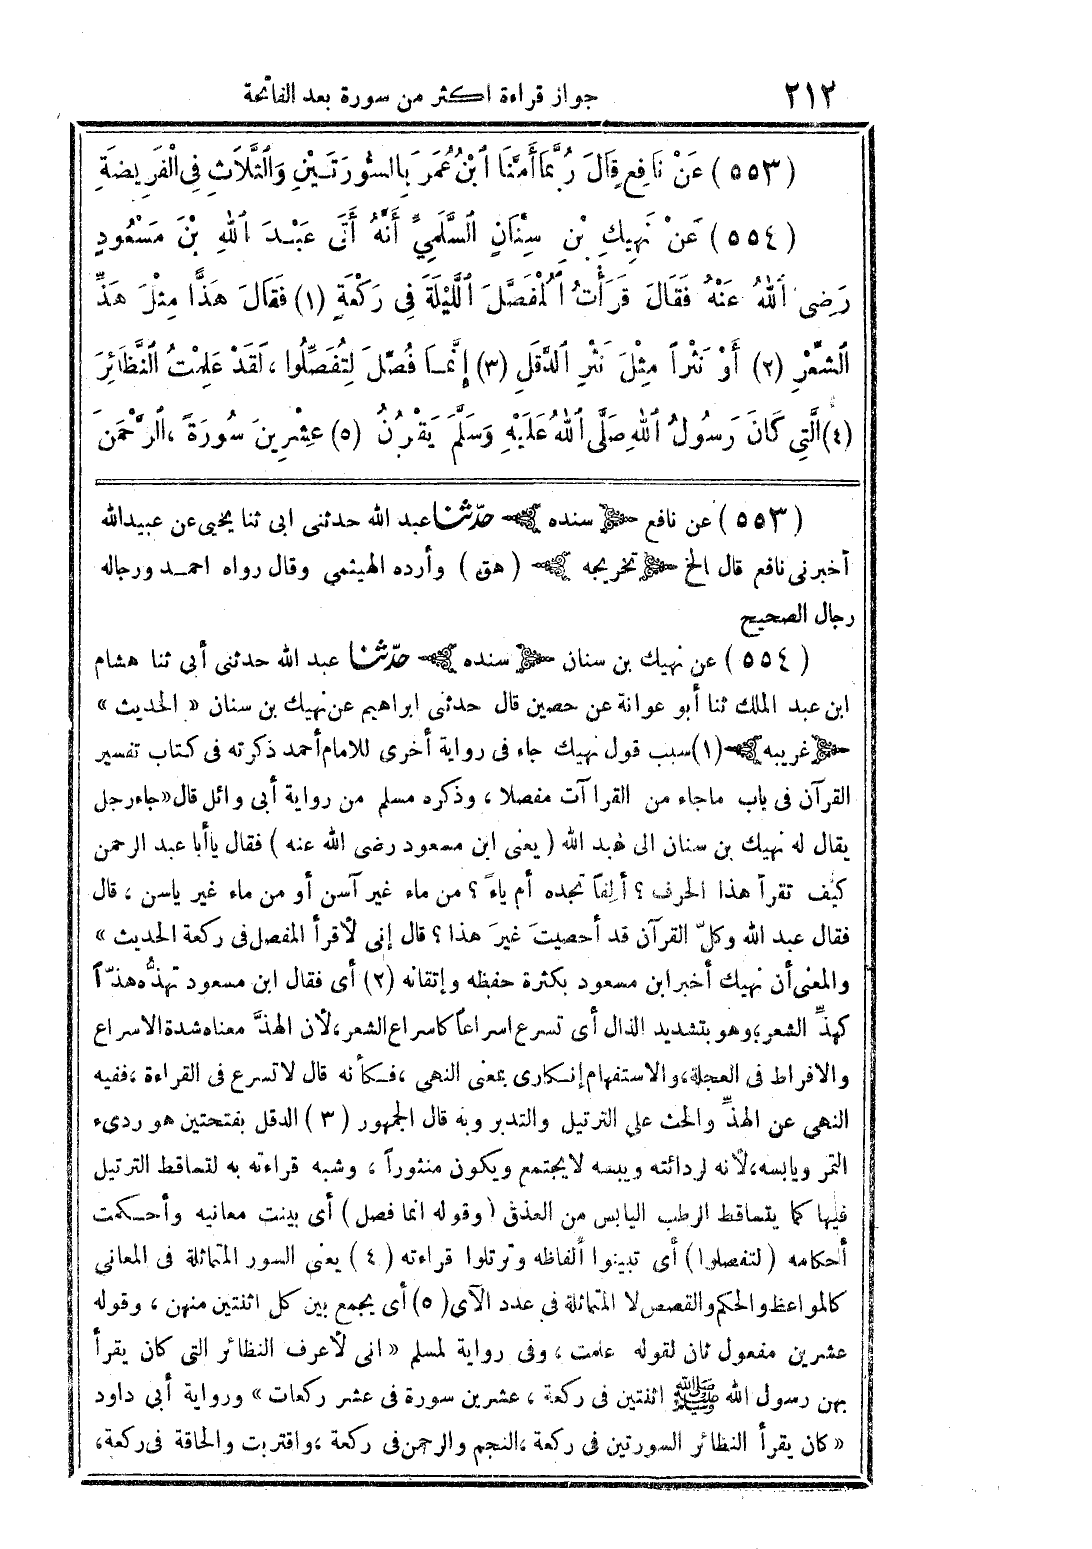 ٢١٢ جواز قراءة اكثر من سورة بعد الفاتحة
(٥٥٣) عَنْ نَافِعٍ قَالَ رُبَّمَا أَمَّنَا ابْنُ عُمَرَ بِالسُّورَتَيْنِ وَالثَّلَاثِ فِي الْفَرِيضَةِ
(٥٥٤) عَنْ نَهِيكِ بْنِ سِنَانٍ السُّلَمِيِّ أَنَّهُ أَتَى عَبْدَ اللهِ بْنَ مَسْعُودٍ
رَضِيَ اللهُ عَنْهُ فَقَالَ قَرَأْتُ الْمُفَصَّلَ اللَّيْلَةَ فِي رَكْعَةٍ (١) فَقَالَ هَذًّا مِثْلَ هَذِّ
الشِّعْرِ (٢) أَوْ نَثْراً مِثْلَ نَثْرِ الدَّقَلِ (٣) إِنَّمَا فُصِّلَ لِتُفَصِّلُوا، لَقَدْ عَلِمْتُ النَّظَائِرَ
(٤) الَّتِي كَانَ رَسُولُ اللهِ صَلَّى اللهُ عَلَيْهِ وَسَلَّمَ يَقْرُنُ (٥) عِشْرِينَ سُورَةً، الرَّحْمَنَ
(٥٥٣) عن نافع ﴿ سنده ﴾ حدّثنا عبد الله حدثنى ابى ثنا يحيى عن عبيدالله
أخبرنى نافع قال الخ ﴿ تخريجه ﴾ (هق) وأرده الهيثمى وقال رواه احمد ورجاله
رجال الصحيح
(٥٥٤) عن نهيك بن سنان ﴿ سنده ﴾ حدّثنا عبد الله حدثنى أبى ثنا هشام
ابن عبد الملك ثنا أبو عوانة عن حصين قال حدثنى ابراهيم عن نهيك بن سنان « الحديث »
﴿ غريبه ﴾ (١) سبب قول نهيك جاء فى رواية أخرى للامام أحمد ذكرته فى كتاب تفسير
القرآن فى باب ماجاء من القراآت مفصلا، وذكره مسلم من رواية أبى وائل قال «جاء رجل
يقال له نهيك بن سنان الى عبد الله (يعنى ابن مسعود رضى الله عنه) فقال ياأبا عبد الرحمن
كيف تقرأ هذا الحرف؟ ألِفاً تجده أم ياءً؟ من ماء غير آسن أو من ماء غير ياسن، قال
فقال عبد الله وكلّ القرآن قد أحصيتَ غيرَ هذا؟ قال إنى لأقرأ المفصل فى ركعة الحديث »
والمعنى أن نهيك أخبر ابن مسعود بكثرة حفظه وإتقانه (٢) أى فقال ابن مسعود تهذُّه هذّاً
كهذِّ الشعر، وهو بتشديد الذال أى تسرع اسراعاً كاسراع الشعر، لأن الهذَّ معناه شدة الاسراع
والافراط فى العجلة، والاستفهام إنكارى بمعنى النهى، فكأنه قال لاتسرع فى القراءة، ففيه
النهى عن الهذِّ والحث على الترتيل والتدبر وبه قال الجمهور (٣) الدقل بفتحتين هو ردىء
التمر ويابسه، لأنه لردائته ويبسه لايجتمع ويكون منثوراً، وشبه قراءته به لتساقط الترتيل
فيها كما يتساقط الرطب اليابس من العذق (وقوله انما فصل) أى بينت معانيه وأحكمت
أحكامه (لتفصلوا) أى تبينوا ألفاظه وترتلوا قراءته (٤) يعنى السور المتماثلة فى المعانى
كالمواعظ والحكم والقصص لا المتماثلة فى عدد الآى (٥) أى يجمع بين كل اثنتين منهن، وقوله
عشرين مفعول ثان لقوله علمت، وفى رواية لمسلم «انى لأعرف النظائر التى كان يقرأ
بهن رسول الله ﷺ اثنتين فى ركعة، عشرين سورة فى عشر ركعات» ورواية أبى داود
«كان يقرأ النظائر السورتين فى ركعة، النجم والرحمن فى ركعة، واقتربت والحاقة فى ركعة،